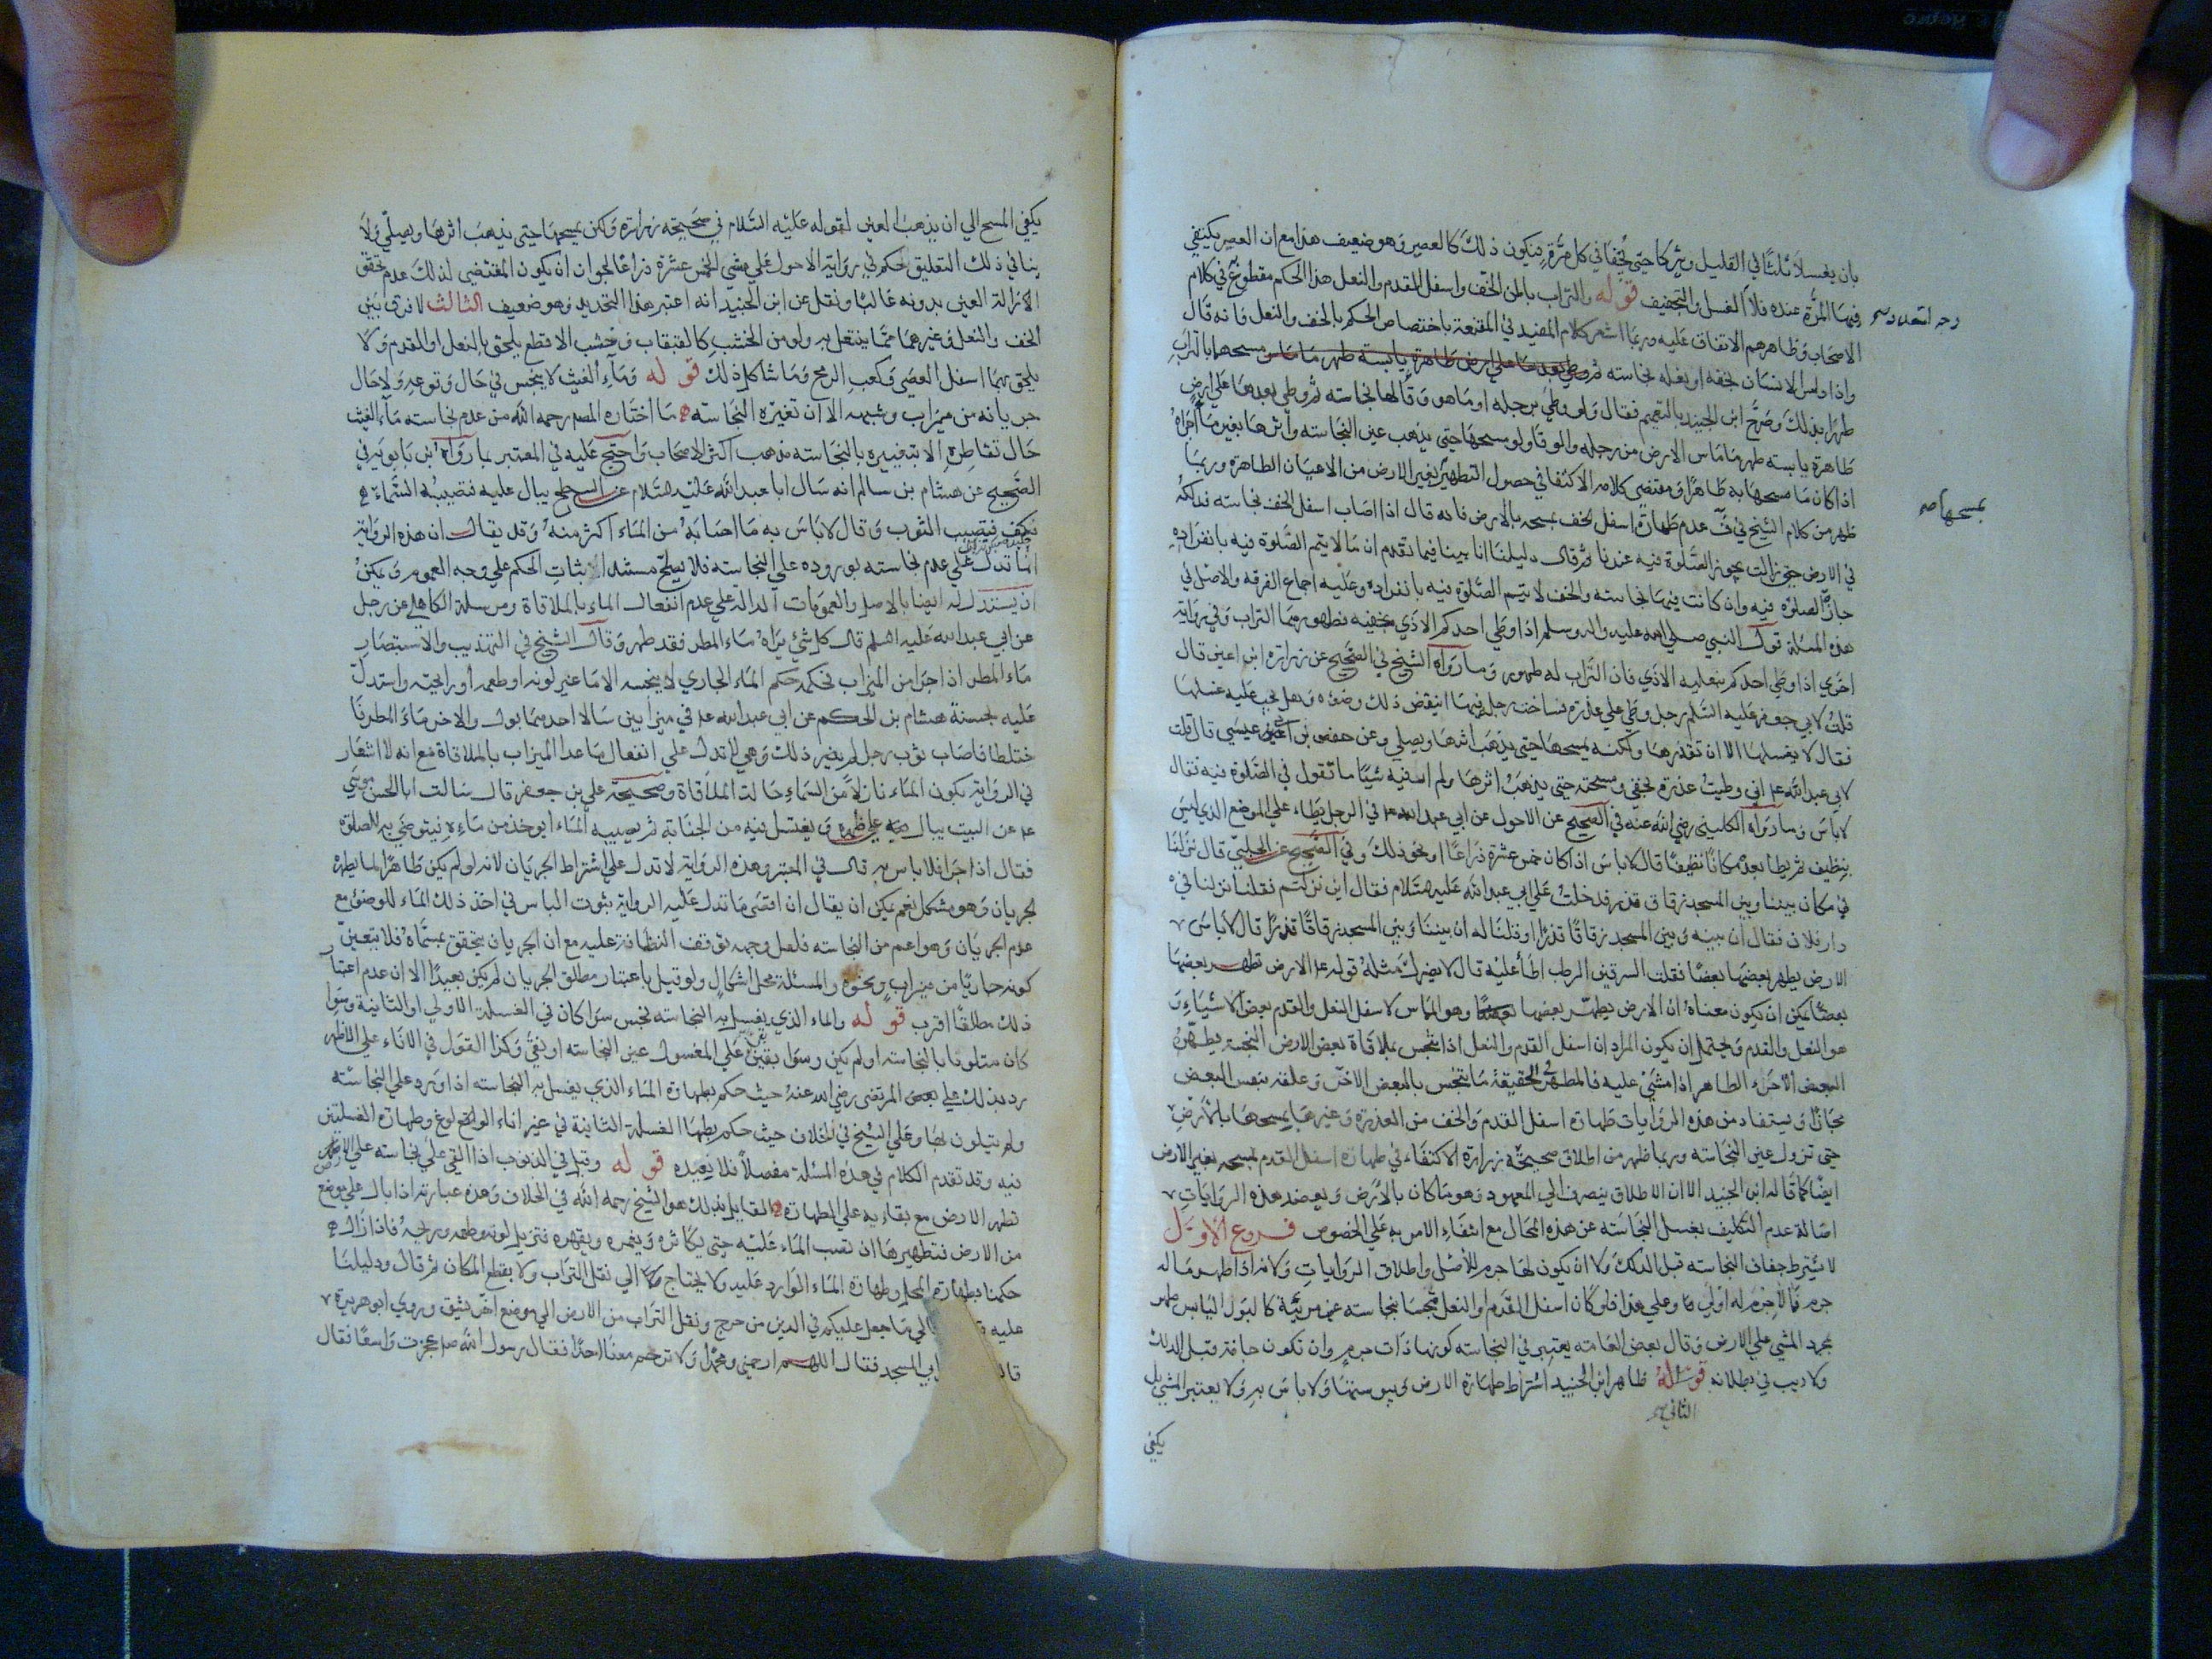 بان يغسلا ثلثا في القليل ويتركا حتى يجفا في كل مرة فيكون ذلك كالعصير وهو ضعيف هذا مع ان العصر يكتفي
فيها المرة عنده فلا الغسل والتجفيف قوله والتراب باطن الخف واسفل القدم والنعل هذا الحكم مقطوع في كلام
الاصحاب وظاهرهم الاتفاق عليه وربما اشعر كلام المفيد في المقنعة باختصاص الحكم بالخف والنعل فانه قال
واذا داس الانسان بخفه او نعله نجاسة ثم مسحهما بالتراب
طهرا بذلك وصرح ابن الجنيد بالتعميم فقال ولو وطي برجله او ما هو وقا لها نجاسة ثم وطي بعدها على ارض
طاهرة يابسة طهر ما ماس الارض من رجله والوقا ولو مسحها حتى يذهب عين النجاسة واثرها بغير ماء اجزاه
اذا كان ما مسحها به طاهرا ومقتضى كلامه الاكتفا في حصول التطهير بغير الارض من الاعيان الطاهرة وربما
ظهر من كلام الشيخ في ف عدم طهارة اسفل الخف بمسحه بالارض فانه قال اذا اصاب اسفل الخف نجاسة فدلكه
في الارض حتى زالت يجوز الصلوة فيه عندنا ثم قال دليلنا انا بينا فيما تقدم ان ما لا يتم الصلوة فيه بانفراده
جازت الصلوة فيه وان كانت فيها نجاسة والخف لا يتم الصلوة فيه بانفراده وعليه اجماع الفرقة والاصل في
هذه المسئلة قول النبي صلى الله عليه واله وسلم اذا وطي احدكم الاذي بخفيه فطهورهما التراب وفي رواية
اخري اذا وطي احدكم بنعليه الاذي فان التراب له طهور وما رواه الشيخ في الصحيح عن زرارة ابن اعين قال
قلت لابي جعفر عليه السلم رجل وطي علي عذرة فساخت رجله فيها اينقض ذلك وضوءه وهل يجب عليه غسلها
فقال لا يغسلها الا ان تقذرها ولكنه يمسحها حتى يذهب اثرها ويصلي وعن حفص بن عيسي قال قلت
لابي عبد الله ع اني وطيت عذرة بخفي ومسحته حتى يذهب اثرها ولم ار فيه شيئا ما تقول في الصلوة فيه فقال
لا باس وما رواه الكليني رضي الله عنه في الصحيح عن الاحول عن ابي عبد الله ع في الرجل يطاء على الموضع الذي ليس
بنظيف ثم يطا بعده مكانا نظيفا قال لا باس اذا كان خمس عشرة ذراعا او نحو ذلك وفي الصحيح عن الحلبي قال نزلنا
في مكان بيننا وبين المسجد زقاق قذر فدخلت على ابي عبد الله عليه السلام فقال اين نزلتم فقلنا نزلنا في
دار فلان فقال ان بينه وبين المسجد زقاقا قذرا او قلنا له ان بيننا وبين المسجد زقاقا قذرا قال لا باس
الارض يطهر بعضها بعضا فقلت السرقين الرطب اطأ عليه قال لا يضرك مثله قوله ع الارض تطهر بعضها
بعضا يمكن ان يكون معناه ان الارض يطهر بعضها وهو المماس لاسفل النعل والقدم بعض الاشياء و
هو النعل والقدم ويحتمل ان يكون المراد ان اسفل القدم والنعل اذا تنجس بملاقاة بعض الارض النجسة يطهره
البعض الاخر الطاهر اذا مشي عليه فالمطهر في الحقيقة ما تنجس بالبعض الاخر وعلقه بنفس البعض
مجازا ويستفاد من هذه الروايات طهارة اسفل القدم والخف من العذرة وغيرها بمسحها بالارض
حتى تزول عين النجاسة وربما ظهر من اطلاق صحيحة زرارة الاكتفاء في طهارة اسفل القدم بمسحه بغير الارض
ايضا كما قاله ابن الجنيد الا ان الاطلاق ينصرف الي المعهود وهو ما كان بالارض ويعضد هذه الروايات
اصالة عدم التكليف بغسل النجاسة عن هذه المحال مع انتفاء الامر به على الخصوص فروع الاول
لا يشترط جفاف النجاسة قبل الدلك ولا ان يكون لها جرم للاصل واطلاق الروايات ولانه اذا طهر ما له
جرم فما لا جرم له اولي وعلي هذا فلو كان اسفل القدم او النعل متنجسا بنجاسة غير مرئية كالبول اليابس طهر
بمجرد المشي علي الارض وقال بعض العامة يعتبر في النجاسة كونها ذات جرم وان تكون جافة قبل الدلك
ولا ريب في بطلانه الثاني ظاهر ابن الجنيد اشتراط طهارة الارض ويبوستها ولا باس به ولا يعتبر المشي بل
يكفي
بمسحها
يكفي المسح الي ان يذهب العين لقوله عليه السلام في صحيحة زرارة ولكن يمسحها حتى يذهب اثرها ويصلي ولا
ينافي ذلك التعليق الحكم في رواية الاحول علي مشي الخمس عشرة ذراعا لجواز ان يكون المقتضي لذلك عدم تحقق
الازالة العين بدونه غالبا ونقل عن ابن الجنيد انه اعتبر هذا التحديد وهو ضعيف الثالث لا فرق بين
الخف والنعل وغيرهما مما ينتعل به ولو من الخشب كالقبقاب وخشب الاقطع يلحق بالنعل او القدم ولا
يلحق بهما اسفل العصي وكعب الرمح وما شاكل ذلك قوله وماء الغيث لا ينجس في حال وقوعه ولا حال
جريانه من ميزاب وشبهه الا ان تغيره النجاسة ما اختاره المصر رحمه الله من عدم نجاسة ماء الغيث
حال تقاطره الا بتغييره بالنجاسة مذهب اكثر الاصحاب واحتج عليه في المعتبر بما رواه ابن بابويه في
الصحيح عن هشام بن سالم انه سال ابا عبد الله عليه السلام عن السطح يبال عليه فتصيبه السماء
فيكف فيصيب الثوب وقال لا باس به ما اصابه من الماء اكثر منه وقد يقال ان هذه الرواية
انما تدل علي عدم نجاسته بوروده علي النجاسة فلا يصلح مستندا لاثبات الحكم علي وجه العموم ويمكن
ان يستدل له ايضا بالاصل والعمومات الدالة علي عدم انفعال الماء بالملاقاة ومرسلة الكاهلي عن رجل
عن ابي عبد الله عليه السلم قال كل شيء يراه ماء المطر فقد طهر وقال الشيخ في التهذيب والاستبصار
ماء المطر اذا جرا من الميزاب فحكمه حكم الماء الجاري لا ينجسه الا ما غير لونه او طعمه او رايحته واستدل
عليه بحسنة هشام بن الحكم عن ابي عبد الله ع في ميزابين سالا احدهما بول والاخر ماء المطر فا
ختلطا فاصاب ثوب رجل لم يضر ذلك وهي لا تدل علي انفعال ما عدا الميزاب بالملاقاة مع انه لا اشعار
في الرواية بكون الماء نازلا من السماء حالة الملاقاة وصحيحة علي بن جعفر قال سالت ابا الحسن موسي
ع عن البيت يبال علي ظهره ويغتسل فيه من الجنابة ثم يصيبه الماء ايوخذ من مائه فيتوضي به للصلوة
فقال اذا جرا فلا باس به قال في المعتبر وهذه الرواية لا تدل علي اشتراط الجريان لانه لو لم يكن طاهرا لما يطهره
لجريان وهو مشكل نعم يمكن ان يقال ان اقصي ما تدل عليه الرواية ثبوت الباس في اخذ ذلك الماء للوضوء مع
عدم الجريان وهو اعم من النجاسة فلعل وجهه توقف النظافة عليه مع ان الجريان يتحقق بمسماه فلا يتعين
كونه جاريا من ميزاب ونحوه والمسئلة محل اشكال ولو قيل باعتبار مطلق الجريان لم يكن بعيدا الا ان عدم اعتبار
ذلك مطلقا اقرب قوله والماء الذي يغسل به النجاسة نجس سوا كان في الغسلة الاولي او الثانية وسوا
كان متلونا بالنجاسة او لم يكن وسوا بقي علي المغسول عين النجاسة او نقي وكذا القول في الاناء علي الاظهر
رد بذلك علي المرتضى رضي الله عنه حيث حكم بطهارة الماء الذي يغسل به النجاسة اذا ورد علي النجاسة
ولم يتلون بها وعلي الشيخ في الخلاف حيث حكم بطهارة الغسلة الثانية في غير اناء الولوغ وطهارة الغسلتين
فيه وقد تقدم الكلام في هذه المسئلة مفصلا فلا نعيده قوله وقيل في الذنوب اذا القي علي نجاسة علي الارض
تطهر الارض مع بقاءيه علي الطهارة القايل بذلك هو الشيخ رحمه الله في الخلاف وهذه عبارته اذا بال علي موضع
من الارض فتطهيرها ان تصب الماء عليه حتى يكاثره ويغمره ويقهره فتزيل لونه وطعمه وريحه فاذا زال
حكمنا بطهارة المحل وطهارة الماء الوارد عليه ولا يحتاج الي نقل التراب ولا يقطع المكان ثم قال ودليلنا
عليه الي ما جعل عليكم في الدين من حرج ونقل التراب من الارض الي موضع اخر يشق وروي ابو هريرة
قال ابي المسجد فقال اللهم ارحمني ومحمدا ولا ترحم معنا احدا فقال رسول الله ص عجزت واسعا فقال